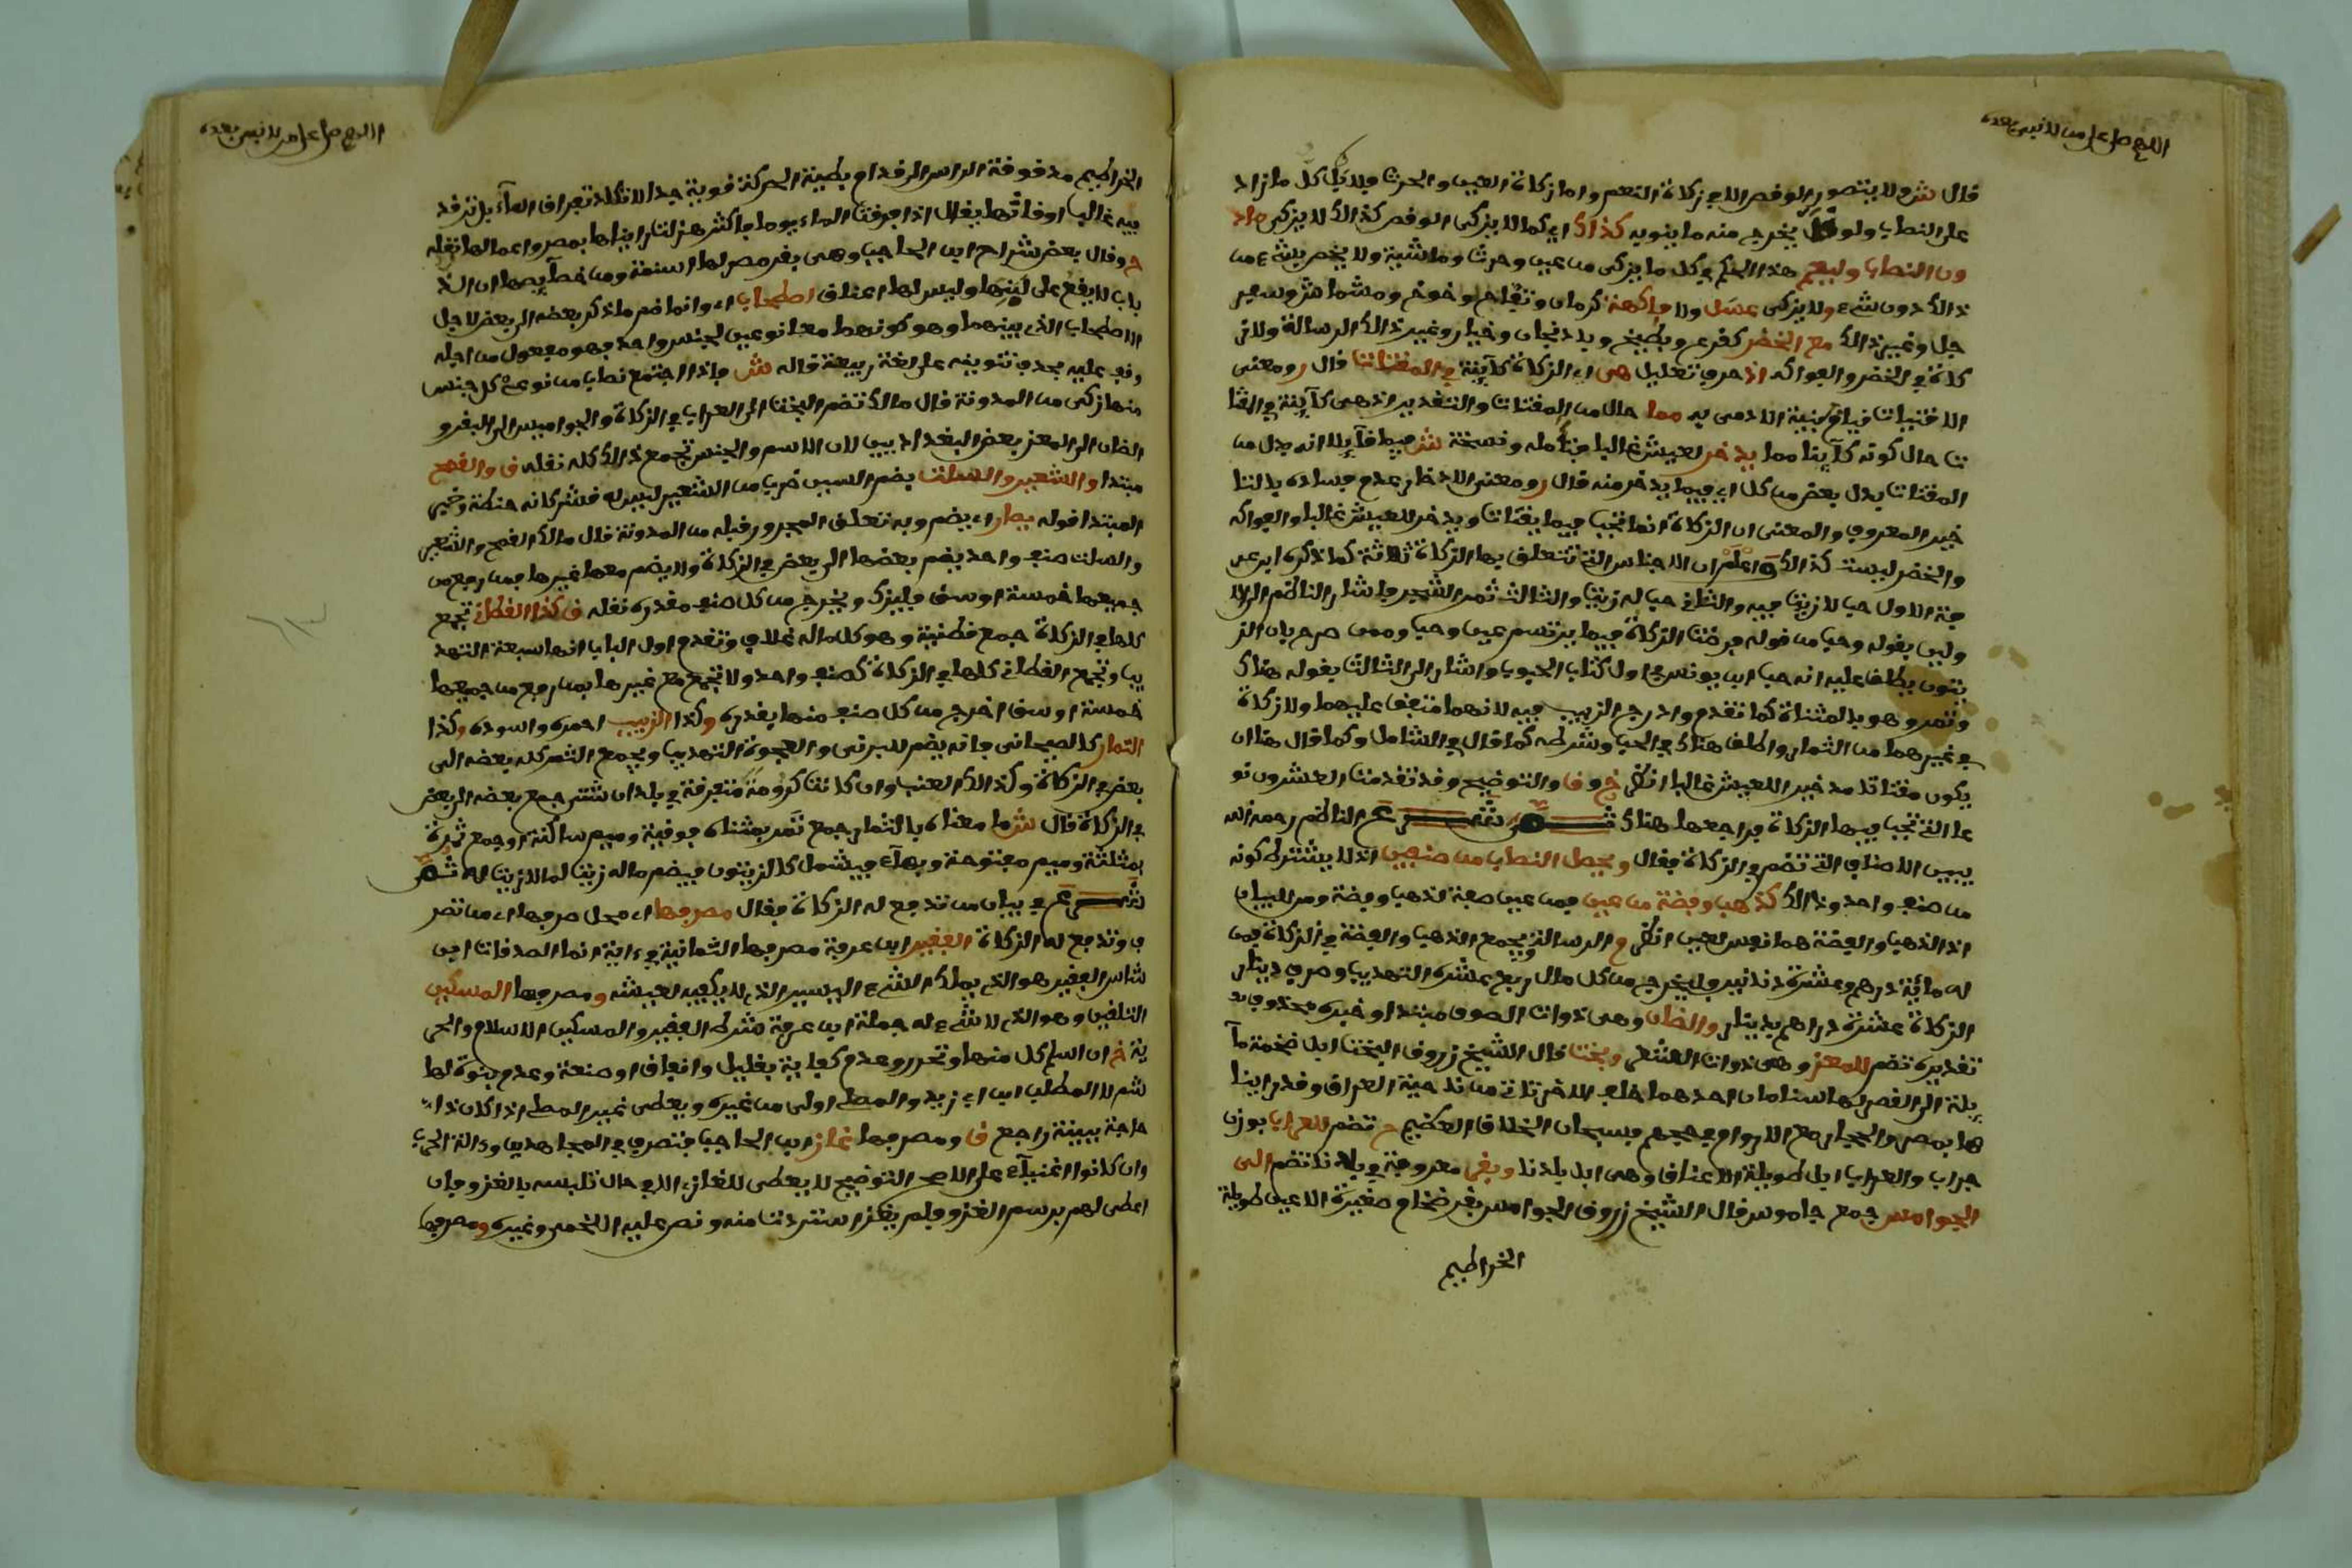 اللهم صل على من لا نبي بعده
قال ش ولا يتصور الوقص الا في زكاة النعم واما زكاة العين والحرث فلا بل كل ما زاد
على النصاب ولو قل يخرج منه ما ينوبه كذاك اي كما لا يزكى الوقص كذالك لا يزكى ماد
ون النصاب وليعم هذا الحكم في كل ما يزكى من عين وحرث وماشية ولا يخص بشيء من
ذالك دون شيء ولا يزكى عسل ولا فاكهة كرمان وتفاح وخوخ ومشماش وسفر
جل وغير ذالك مع الخضر كقرع وبطيخ وبادنجان وخيار وغير ذالك الرسالة ولا ز
كاة في الخضر والفواكه اذ حرف تعليل هي اي الزكاة كآينة في المقتات قال و ومعنى
الاقتيات قيام بنية الادمى به مما حال من المقتات والتقدير اذ هي كآينة في المقتا
ت حال كونه كآينا مما يدخر لعيش غالبا فتأمله ونسخة ش فيما قآيلا انه بدل من
المقتات بدل بعض من كل اي فيما يدخر منه قال و ومعنى الادخار عدم فساده بذلتا
خير المعروف والمعنى ان الزكاة انما تجب فيما يقتات ويدخر للعيش غالبا والفواكه
والخضر ليست كذالك واعلم ان الاجناس التي تتعلق بها الزكاة ثلاثة كما ذكره ابن عر
فة الاول حب لا زيت فيه والثاني حب له زيت والثالث ثمر الشجر فاشار الناظم الى الا
ولين بقوله وحب من قوله فرضت الزكاة فيما يرتسم عين وحب وممن صرح بان الز
يتون يطلق عليه انه حب ابن يونس في اول كتاب الحبوب واشار الى الثالث بقوله هناك
وثمر وهو بالمثناة كما تقدم وادرج الزبيب فيه لانهما متفق عليهما ولا زكاة
في غيرهما من الثمار واطلق هناك في الحب وشرطه كما قال في الشامل وكما قال هنا ان
يكون مقتاتا مدخرا للعيش غالبا انظر خ وق والتوضيح وقد تقدمت العشرون نو
عا التي تجب فيها الزكاة فراجعها هناك ثم شرع الناظم رحمه الله
يبين الاصناف التي تضم في الزكاة فقال ويحصل النصاب من صنفين اذ لا يشترط كونه
من صنف واحد وذالك كذهب وفضة من عين فمن عين صفة لذهب وفضة ومن للبيان
اذ الذهب والفضة هما نفس العين انظر والرسالة ويجمع الذهب والفضة في الزكاة فمن
له مائة درهم وعشرة دنانير فليخرج من كل مال ربع عشره التهذيب وصرف دينار
الزكاة عشرة دراهم بدينار والضان وهي ذوات الصوف مبتدا وخبره محذوف
تقديره تضم للمعز وهي ذوات الشعر وبخت قال الشيخ زروق البخت ابل ضخمة مآ
يلة الى القصر لها سنامان احدهما خلف الاخر تاتي من ناحية العراق وقد راينا
ها بمصر والحجاز مع الاروام في حجهم فسبحان الخلاق العظيم تضم للعراب بوزن
جراب والعراب ابل طويلة الاعناق وهي ابل بلدنا وبقر معروفة في بلادنا تضم الى
الجوامس جمع جاموس قال الشيخ زروق الجوامس بقر ضخام صغيرة الاعين طويلة
الخراطيم
اللهم صل على من لا نبي بعده
الخراطيم مدفوفة الراس الى قدام بطيئة الحركة قوية جدا لا تكاد تفراق المآء بل ترقد
فيه غالب اوقاتها يقال اذا فرقت الماء يوما فاكثر هزلت رايناها بمصر واعمالها نقله
ح وقال بعض شراح ابن الحاجب وهي بقر مصر لها اسنمة ومن خصآيصها ان الذ
باب لا يقع على لبنها وليس لها اعناق اصطحاب اي وانما ضم ما ذكر بعضه الى بعض لاجل
الاصطحاب الذي بينهما وهو كونهما معا نوعين لجنس واحد فهو مفعول من اجله
وقف عليه بحذف تنوينه على لغة ربيعة قاله ش فاذا اجتمع نصاب من نوعي كل جنس
منها زكى من المدونة قال مالك تضم البخت الى العراب في الزكاة والجواميس الى البقر و
الضان الى المعز بعض البغداديين لان الاسم والجنس يجمع ذالك كله نقله ق والقمح
مبتدا والشعير والسلت بضم السين ضرب من الشعير ليس له قشر كانه حنطة وخبر
المبتدا قوله يصار اي يضم وبه تعلق المجرور قبله من المدونة قال مالك القمح والشعير
والسلت صنف واحد يضم بعضها الى بعض في الزكاة ولا يضم معها غيرها فمن رفع من
جميعها خمسة اوسق فليزك ويخرج من كل صنف بقدره نقله ق كذا القطاني تجمع
كلها في الزكاة جمع قطنية وهو كل ماله غلاف وتقدم اول الباب انها سبعة التهذ
يب وتجمع القطاني كلها في الزكاة كصنف واحد ولا تجمع مع غيرها فمن رفع من جميعها
خمسة اوسق اخرج من كل صنف منها بقدره وكذا الزبيب احمره واسوده وكذا
التمار كالصيحاني فانه يضم للبرني والعجوة التهذيب ويجمع التمر كله بعضه الى
بعض في الزكاة وكذالك العنب وان كانت كرومه متفرقة في بلدان شتى جمع بعضه الى بعض
في الزكاة قال ش ما معناه بالثمار جمع تمر بمثناة فوقية وميم ساكنة او جمع ثمرة
بمثلثة وميم مفتوحة وبهآء فيشمل كالزيتون فيضم ماله زيت لما لا زيت له ثم
شرع في بيان من تدفع له الزكاة فقال مصرفها اي محل صرفها اي من تصر
ف وتدفع له الزكاة الفقير ابن عرفة مصرفها الثمانية في ءاية انما الصدقات ابن
شاس الفقير هو الذي يملك الشيء اليسير الذي لا يكفيه لعيشه ومصرفها المسكين
التلقين وهو الذي لا شيء له جملة ابن عرفة شرط الفقير والمسكين الاسلام والحر
ية خ ان اسلم كل منهما وتحرر وعدم كفاية بقليل وانفاق او صنعة وعدم بنوة لها
شم لا المطلب ابن ابي زيد والمصلي اولى من غيره ويعطى غير المصلي اذا كان ذا
حاجة بينة راجع ق ومصرفها غاز ابن الحاجب فتصرف في المجاهدين وءالة الحرب
وان كانوا اغنيآء على الاصح التوضيح لا يعطى للغازي الا في حال تلبسه بالغزو فان
اعطى لهم برسم الغزو فلم يغز استردت منه ونص عليه اللخمي وغيره ومصرفها